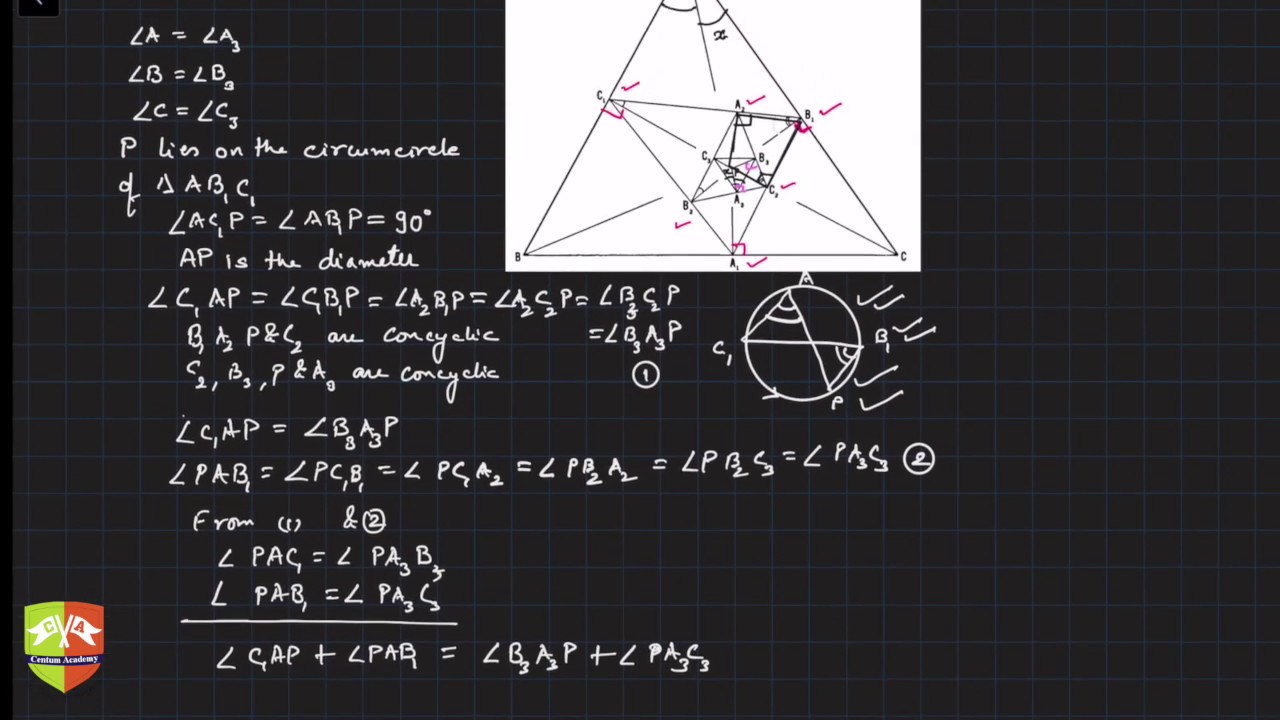 ∠A = ∠A₃
∠B = ∠B₃
∠C = ∠C₃
P lies on the circumcircle
of △ AB₁C₁
∠AC₁P = ∠AB₁P = 90°
AP is the diameter
∠C₁AP = ∠C₁B₁P = ∠A₂B₁P = ∠A₂C₂P = ∠B₃C₂P
B₁ A₂ P & C₂ are concyclic = ∠B₃A₃P
C₂, B₃, P & A₃ are concyclic ①
∠C₁AP = ∠B₃A₃P
∠PAB₁ = ∠PC₁B₁ = ∠PC₁A₂ = ∠PB₂A₂ = ∠PB₂C₃ = ∠PA₃C₃ ②
From (1) & ②
∠PAC₁ = ∠PA₃B₃
∠PAB₁ = ∠PA₃C₃
∠C₁AP + ∠PAB₁ = ∠B₃A₃P + ∠PA₃C₃
x
C₁
A₂
B₁
C₃
B₃
P
C₂
B₂
A₃
B
A₁
C
A
C₁
B₁
P
C A
Centum Academy